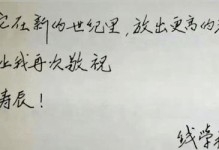 它在新的世纪里，放出更高的
让我再次敬祝
寿辰！
钱学